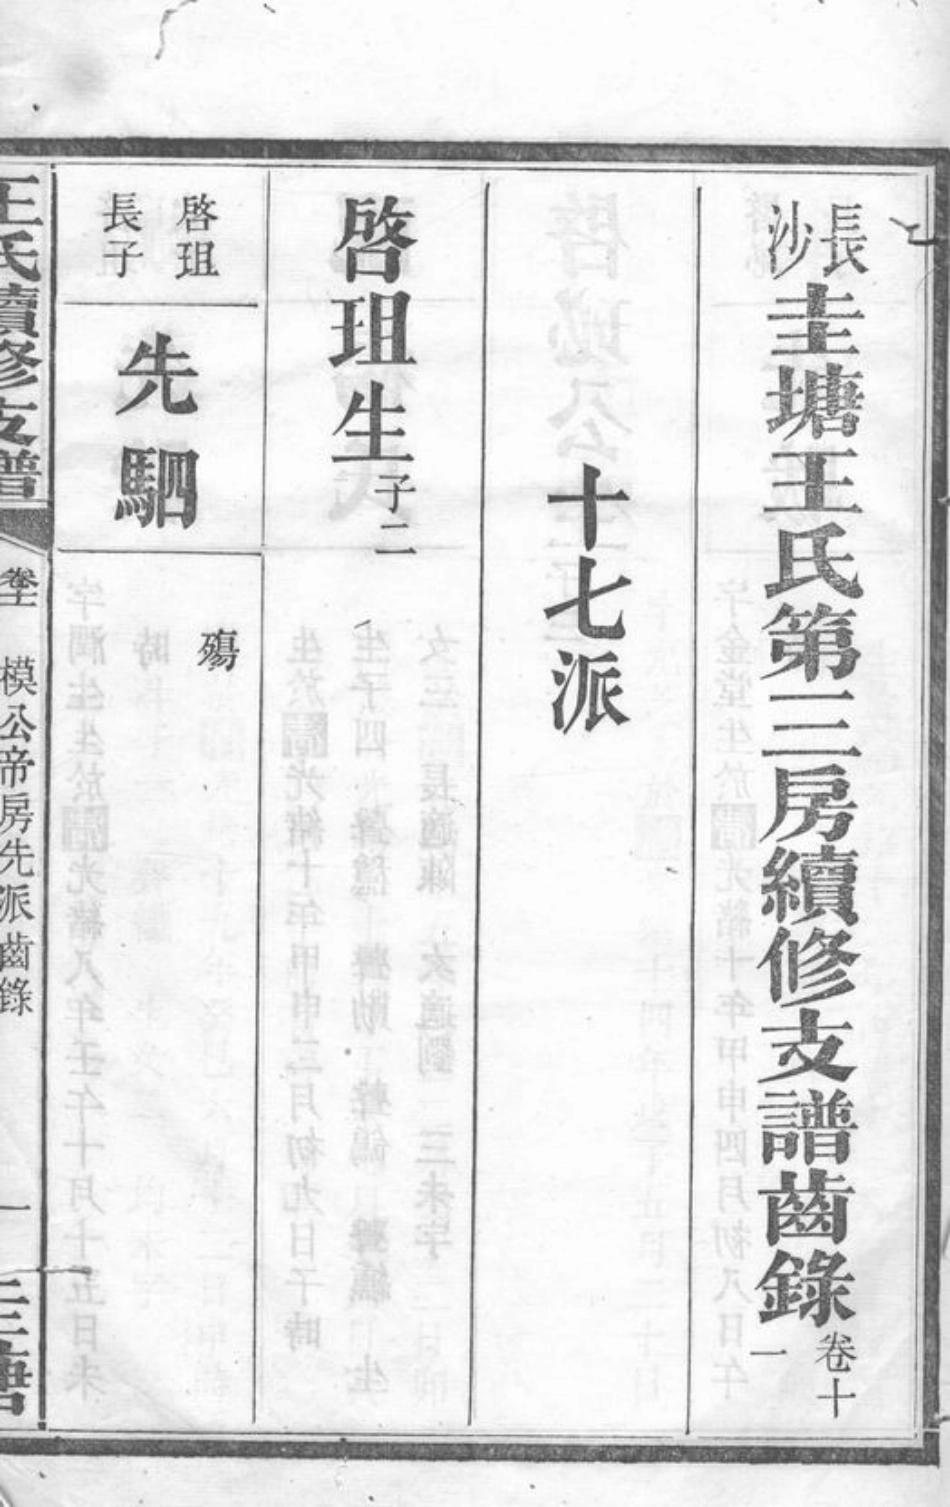 長沙圭塘王氏第三房續修支譜齒錄卷十一
十七派
啓珇生子二
啓珇長子
先駟
殤
王氏續修支譜
模公帝房先派齒錄
一